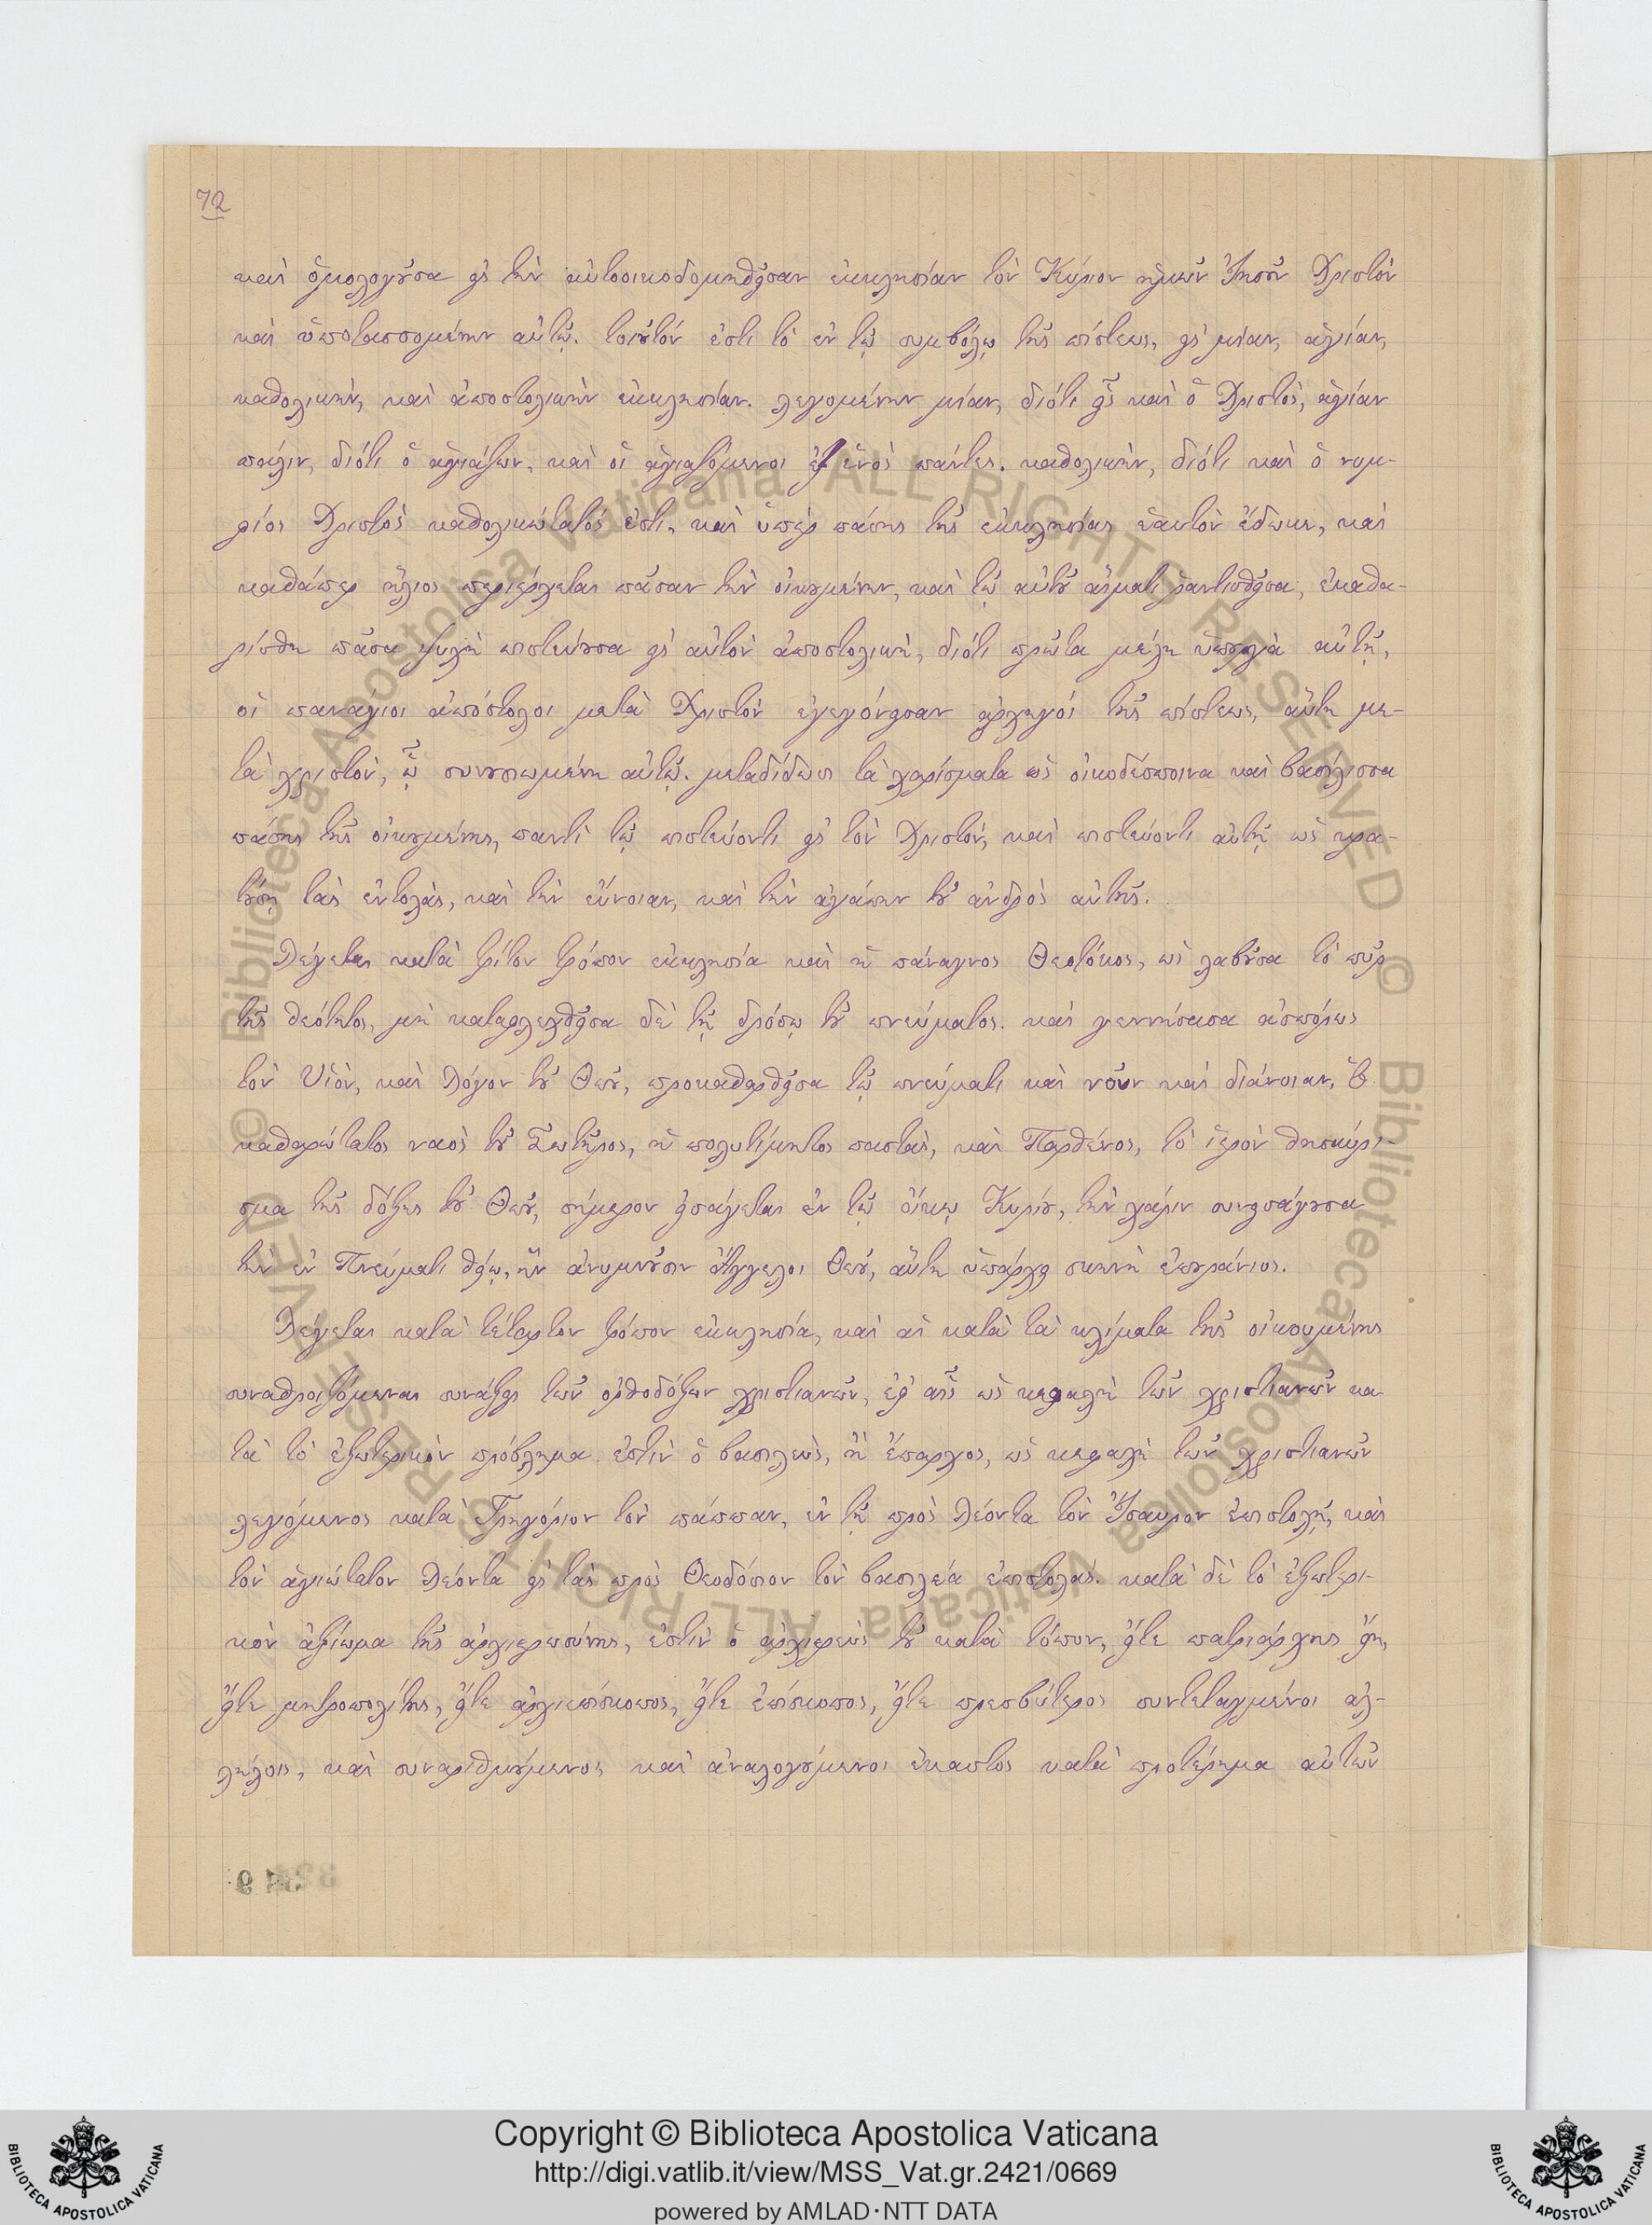 72
καὶ ὁμολογοῦσα εἰς τὴν αὐτοοικοδομηθεῖσαν ἐκκλησίαν τὸν Κύριον ἡμῶν Ἰησοῦν Χριστὸν
καὶ ὑποτασσομένην αὐτῷ. τοιοῦτόν ἐστι τὸ ἐν τῷ συμβόλῳ τῆς πίστεως, εἰς μίαν, ἁγίαν,
καθολικὴν, καὶ ἀποστολικὴν ἐκκλησίαν. λεγομένην μίαν, διότι εἷς καὶ ὁ Χριστὸς, ἁγίαν
πάλιν, διότι ὁ ἁγιάζων, καὶ οἱ ἁγιαζόμενοι ἐξ ἑνὸς πάντες. καθολικὴν, διότι καὶ ὁ νυμ-
φίος Χριστὸς καθολικώτατός ἐστι, καὶ ὑπὲρ πάσης τῆς ἐκκλησίας ἑαυτὸν ἔδωκε, καὶ
καθάπερ ἥλιος περιέρχεται πᾶσαν τὴν οἰκουμένην, καὶ τῷ αὐτοῦ αἵματι ῥαντισθεῖσα, ἐκαθα-
ρίσθη πᾶσα ψυχὴ πιστεύουσα εἰς αὐτὸν ἀποστολικὴ, διότι πρῶτα μέλη αὐτῆς,
οἱ πανάγιοι ἀπόστολοι μετὰ Χριστὸν ἐγεγόνεισαν ἀρχηγοί τῆς πίστεως, αὕτη με-
τὰ χριστὸν, ᾧ συνουσιωμένη αὐτῷ. μεταδίδωσι τὰ χαρίσματα ὡς οἰκοδέσποινα καὶ βασίλισσα
πάσης τῆς οἰκουμένης, παντὶ τῷ πιστεύοντι εἰς τὸν Χριστόν, καὶ πιστεύοντι αὐτῇ ὡς κρα-
τούσῃ τὰς ἐντολὰς, καὶ τὴν εὔνοιαν, καὶ τὴν ἀγάπην τοῦ ἀνδρὸς αὐτῆς.
Λέγεται κατὰ τρίτον τρόπον ἐκκλησία καὶ ἡ πάναγνος Θεοτόκος, ὡς λαβοῦσα τὸ πῦρ
τῆς θεότητος, μὴ καταφλεχθεῖσα δὲ τῇ δρόσῳ τοῦ πνεύματος. καὶ γεννήσασα ἀσπόρως
τὸν Υἱὸν, καὶ Λόγον τοῦ Θεοῦ, προκαθαρθεῖσα τῷ πνεύματι καὶ νοῦν καὶ διάνοιαν. Ὁ
καθαρώτατος ναὸς τοῦ Σωτῆρος, ἡ πολυτίμητος παστὰς, καὶ Παρθένος, τὸ ἱερὸν θησαύρι-
σμα τῆς δόξης τοῦ Θεοῦ, σήμερον εἰσάγεται ἐν τῷ οἴκῳ Κυρίου, τὴν χάριν συνεισάγουσα
τὴν ἐν Πνεύματι θείῳ, ἣν ἀνυμνοῦσιν Ἄγγελοι Θεοῦ, αὕτη ὑπάρχει σκηνὴ ἐπουράνιος.
Λέγεται κατὰ τέταρτον τρόπον ἐκκλησία, καὶ αἱ κατὰ τὰ κλίματα τῆς οἰκουμένης
συναθροιζόμεναι συνάξεις τῶν ὀρθοδόξων χριστιανῶν, ἐφ' αἷς ὡς κεφαλὴ τῶν χριστιανῶν κα-
τὰ τὸ ἐξωτερικὸν πρόβλημα ἐστὶν ὁ βασιλεὺς, ἢ ἔπαρχος, ὡς κεφαλὴ τῶν χριστιανῶν
λεγόμενος κατὰ Γρηγόριον τὸν πάππαν, ἐν τῇ πρὸς Λέοντα τὸν Ἴσαυρον ἐπιστολῇ, καὶ
τὸν ἁγιώτατον Λέοντα εἰς τὰς πρὸς Θεοδόσιον τὸν βασιλέα ἐπιστολάς. κατὰ δὲ τὸ ἐξωτερι-
κὸν ἀξίωμα τῆς ἀρχιερωσύνης, ἐστὶν ὁ ἀρχιερεὺς τοῦ κατὰ τόπον, εἴτε πατριάρχης εἴη,
εἴτε μητροπολίτης, εἴτε ἀρχιεπίσκοπος, εἴτε ἐπίσκοπος, εἴτε πρεσβύτερος συντεταγμένοι ἀλ-
λήλοις, καὶ συναριθμούμενοι καὶ ἀναλογούμενοι ἕκαστος κατὰ προτέρημα αὐτῶν
Copyright © Biblioteca Apostolica Vaticana
http://digi.vatlib.it/view/MSS_Vat.gr.2421/0669
powered by AMLAD·NTT DATA
BIBLIOTECA APOSTOLICA VATICANA
BIBLIOTECA APOSTOLICA VATICANA
© Biblioteca Apostolica Vaticana ALL RIGHTS RESERVED
© Biblioteca Apostolica Vaticana ALL RIGHTS RESERVED